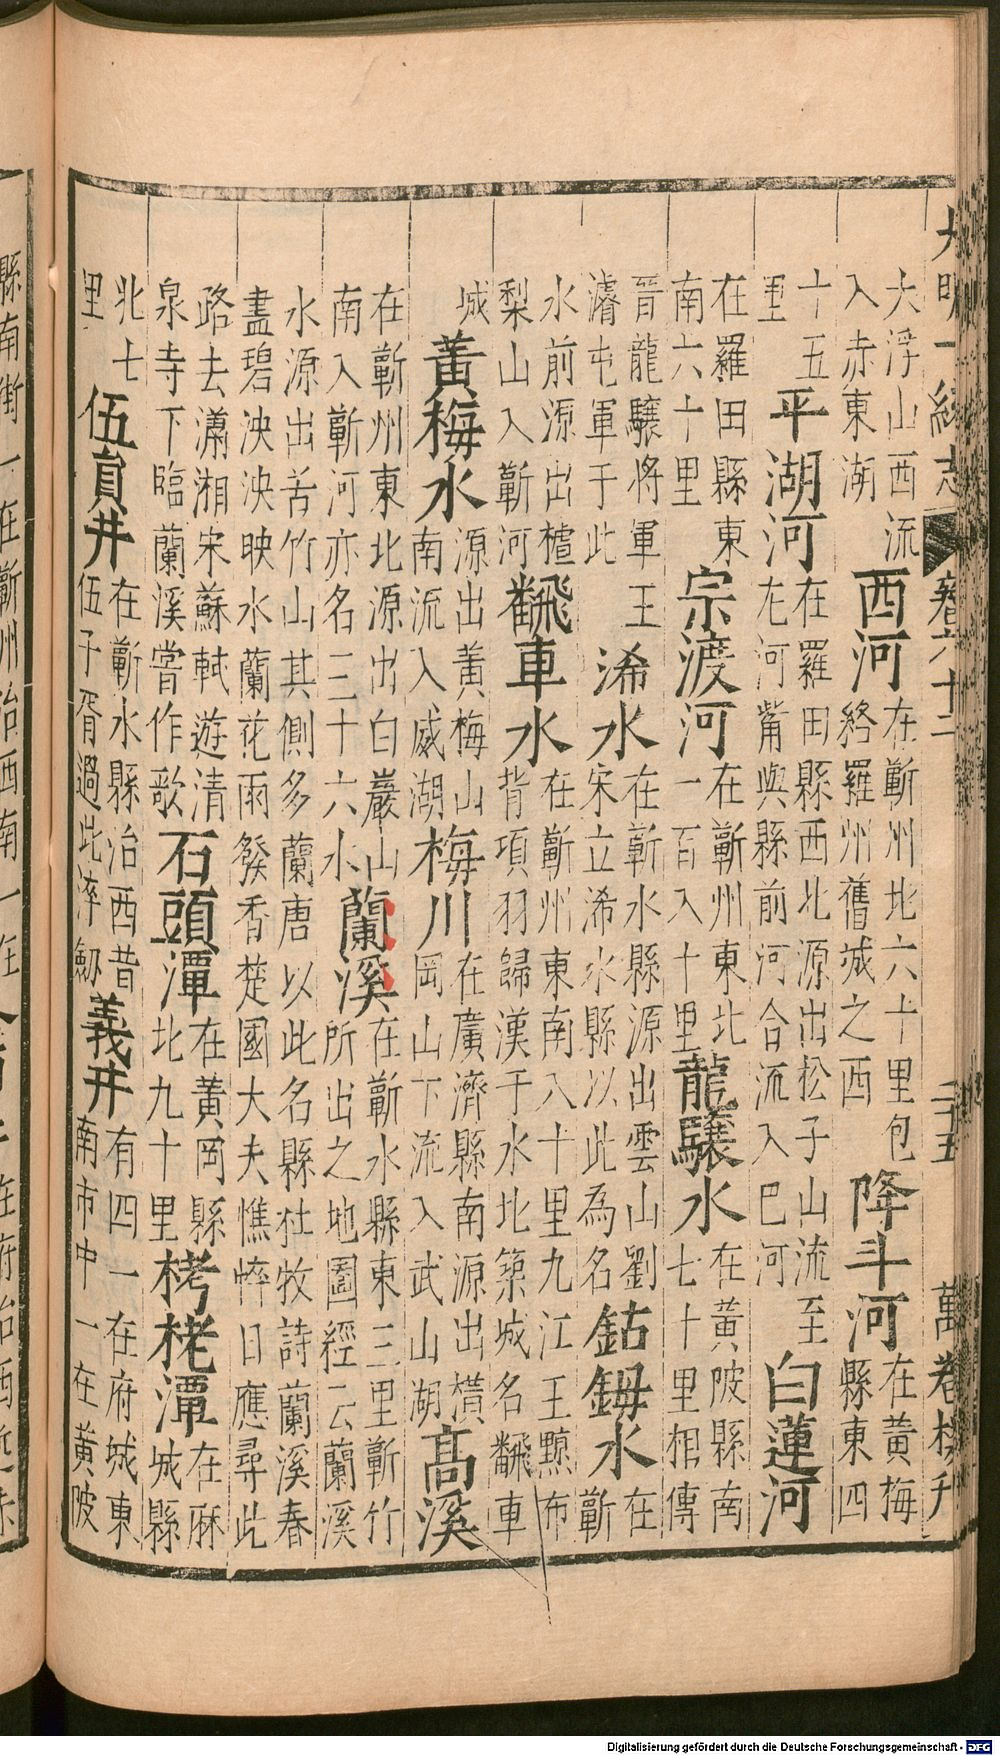 大明一統志 卷六十 二十五 萬卷樓刊
大浮山西流
入赤東湖
西河
在蘄州北六十里包
絡羅州舊城之西
降斗河
在黃梅
縣東四
十五
里
平湖河
在羅田縣西北源出松子山流至
左河觜與縣前河合流入巴河
白蓮河
在羅田縣東
南六十里
宗渡河
在蘄州東北
一百八十里
龍驤水
在黃陂縣南
七十里相傳
晉龍驤將軍王
濬屯軍于此
浠水
在蘄水縣源出雲山劉
宋立浠水縣以此為名
鈷鉧水
在
蘄
水前源出樝
梨山入蘄河
飜車水
在蘄州東南八十里九江王黥布
背項羽歸漢于水北築城名飜車
城
黃梅水
源出黃梅山
南流入威湖
梅川
在廣濟縣南源出橫
岡山下流入武山湖
高溪
在蘄州東北源出白巖山
南入蘄河亦名三十六水
蘭溪
在蘄水縣東三里蘄竹
所出之地圖經云蘭溪
水源出苦竹山其側多蘭唐以此名縣杜牧詩蘭溪春
盡碧泱泱映水蘭花雨發香楚國大夫憔悴日應尋此
路去瀟湘宋蘇軾遊清
泉寺下臨蘭溪嘗作歌
石頭潭
在黃岡縣
北九十里
栲栳潭
在麻
城縣
北七
里
伍員井
在蘄水縣治西昔
伍子胥過此淬劔
義井
有四一在府城東
南市中一在黃陂
縣南街一在蘄州治西南一在
在府治西
Digitalisierung gefördert durch die Deutsche Forschungsgemeinschaft - DFG